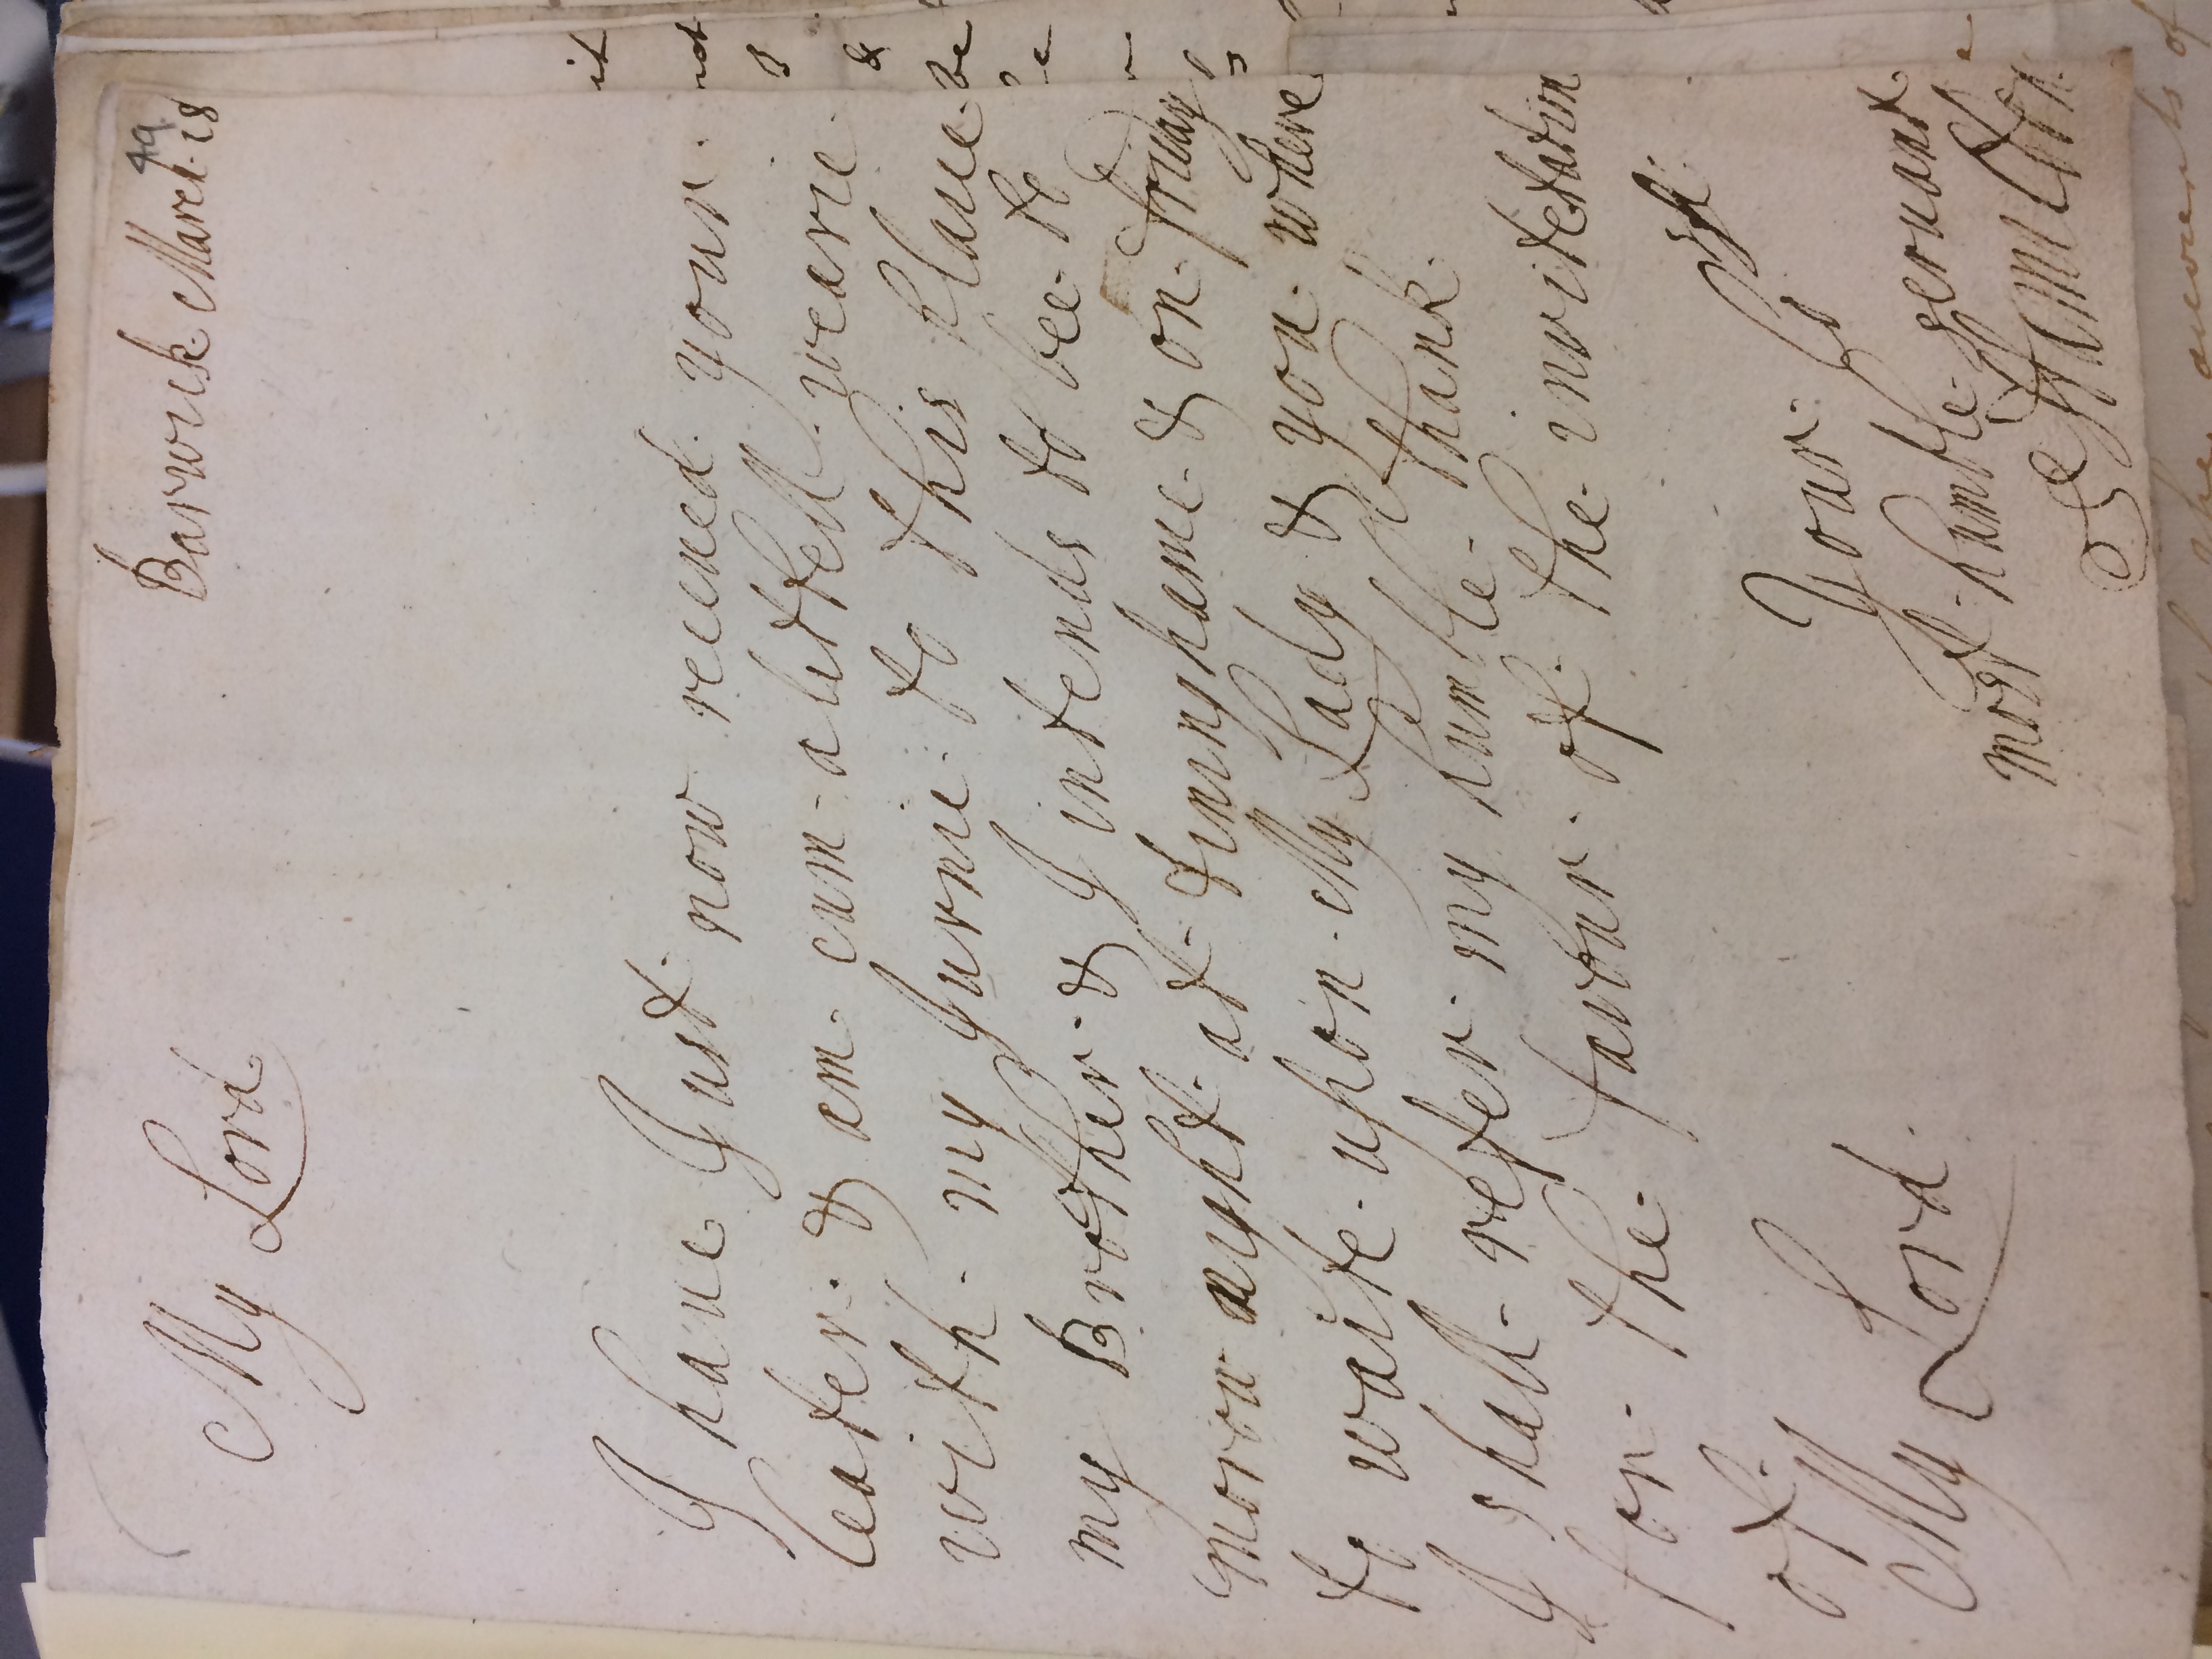 49
Barwick March 18
My Lord
I haue Just now receued your
leater & am cum a littell wearie
with my Jurnie to this place
my Brother & I intends to bee to
morow night at tininghame & on friday
to waite upon My Lady & you where
I shall refer my humble thank
for the favour of the invitetation
of
My Lord
Your Lo sp
most humble servant
Hamilton
it
not
I
&
be
the accounts of